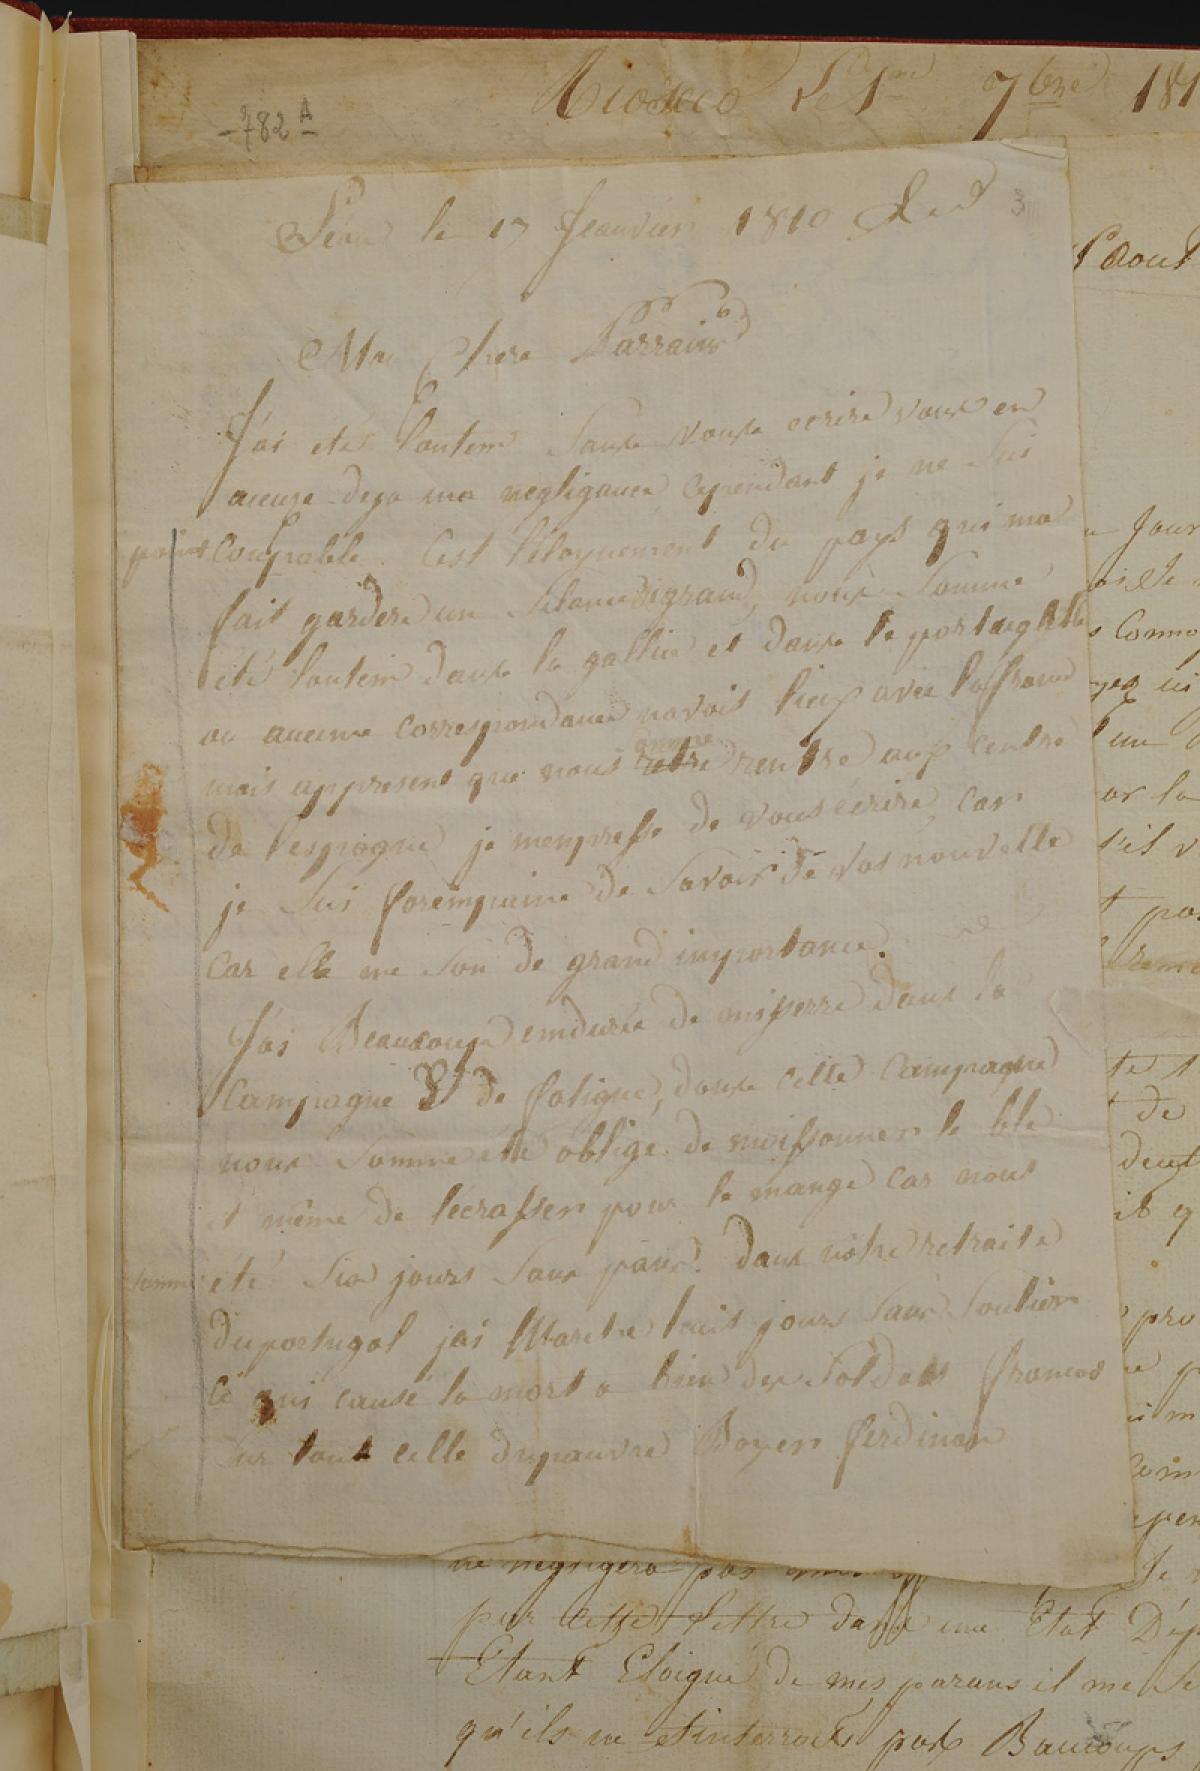 782 A
le 1er 7bre 181
Léon le 17 Jeanvier 1810
3
Mn Chere Parrain
J'ai eté lontem Sanse vouse ecrire vouse en
acuse deja ma negligance, cependant je ne Sui
point Coupable. C'est l'eloynement du pays qui ma
fait gardere un Silance Sigrand, nouse Somme
été lontem danse la gallice et danse le
ou aucune correspondance navoit lieux avec la france
mais appresent que nous rentré aux centre
de l'espagne je mempresse de vous écrire, car
je Suis forempaine de Savoir de vos nouvelle
Car elle me Son de grand importance.
J'ai Beaucoup emdurée de misserre dans la
Campagne Et de fatigue, danse cette Campagne
nouse Somme été oblige de moissonner le blé
et même de lécrasser pour le mangé Car nous
Somme été Six jours Sans pain. Dans notre retraite
du portugal jai Marche huit jours Sans Soulier
Ce qui causé la mort a bien des Soldats francas
Sur tout celle du pauvre Boyer ferdinan
Aout
Jour
s Conno
un
or la
s'il v
t pas
te
de
pro
ne negligera pas
par cette lettre dans une Etat Dép
Etant Eloigné de mes parans il me Se
qu'ils ne pas Baucoups